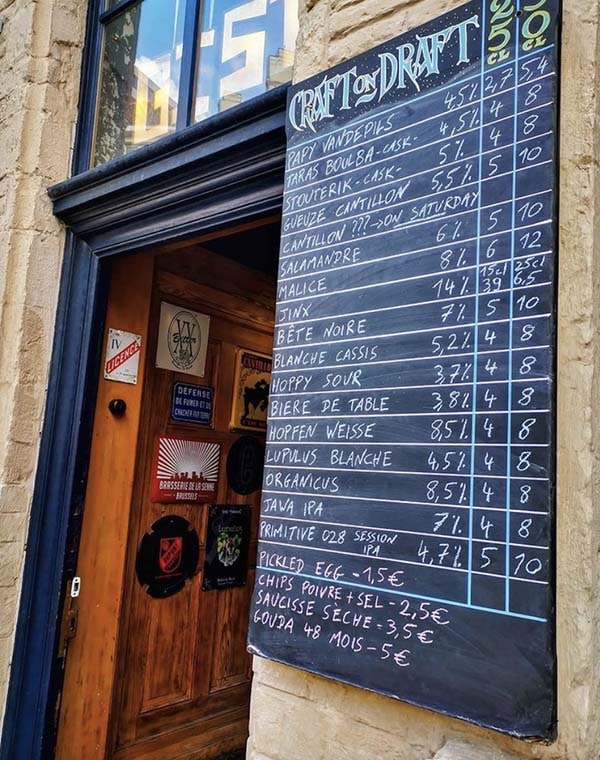 CRAFT ON DRAFT 25cl 50cl
PAPY VANDEPILS 4,5% 2,7 5,4
TARAS BOULBA -CASK- 4,5% 4 8
STOUTERIK -CASK- 5% 4 8
GUEUZE CANTILLON 5,5% 5 10
CANTILLON ??? → ON SATURDAY
SALAMANDRE 6% 5 10
MALICE 8% 6 12
JINX 14% 15cl 39 25cl 6,5
BÊTE NOIRE 7% 5 10
BLANCHE CASSIS 5,2% 4 8
HOPPY SOUR 3,7% 4 8
BIERE DE TABLE 3,8% 4 8
HOPFEN WEISSE 8,5% 4 8
LUPULUS BLANCHE 4,5% 4 8
ORGANICUS 8,5% 4 8
JAWA IPA 7% 4 8
PRIMITIVE 028 SESSION IPA 4,7% 5 10
PICKLED EGG - 1,5€
CHIPS POIVRE + SEL - 2,5€
SAUCISSE SECHE - 3,5€
GOUDA 48 MOIS - 5€
IV
LICENCE
DEFENSE
DE FUMER ET DE
CRACHER PAR TERRE
BRASSERIE DE LA SENNE
BRUSSELS